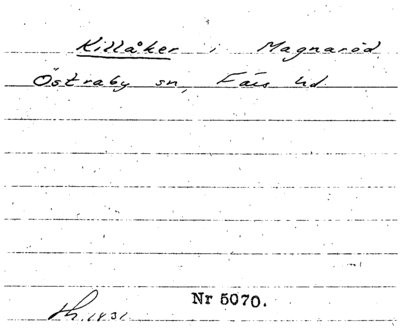 Killåker i Magnaröd
Östraby sn, Färs hd.
Nr 5070.